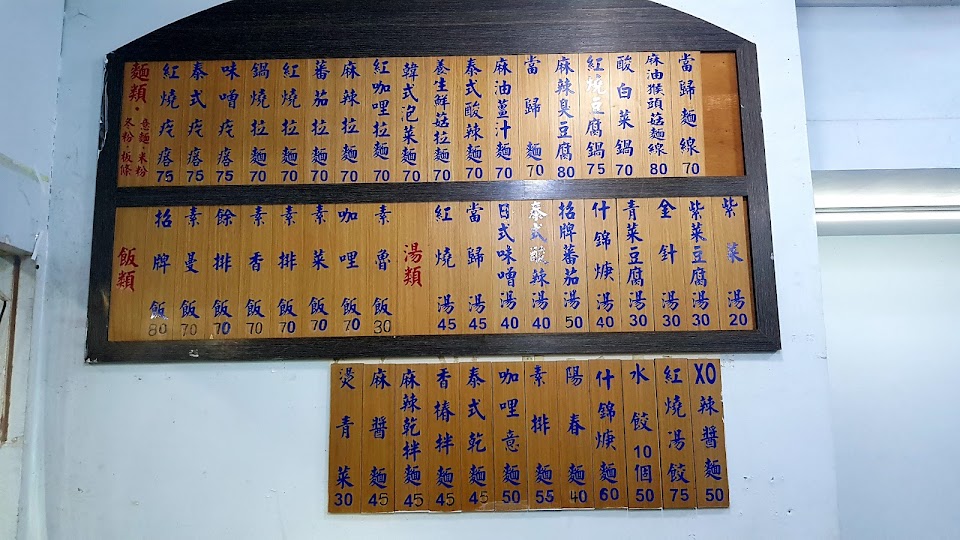 麵類・意麵・米粉
冬粉・板條
紅燒疙瘩75
泰式疙瘩75
味噌疙瘩75
鍋燒拉麵70
紅燒拉麵70
蕃茄拉麵70
麻辣拉麵70
紅咖哩拉麵70
韓式泡菜麵70
養生鮮菇拉麵70
泰式酸辣麵70
麻油薑汁麵70
當歸麵70
麻辣臭豆腐80
紅燒豆腐鍋75
酸白菜鍋70
麻油猴頭菇麵線80
當歸麵線70
飯類
招牌飯80
素曼飯70
餘排飯70
素香飯70
素排飯70
素菜飯70
咖哩飯70
素魯飯30
湯類
紅燒湯45
當歸湯45
日式味噌湯40
泰式酸辣湯40
招牌蕃茄湯50
什錦焿湯40
青菜豆腐湯30
金針湯30
紫菜豆腐湯30
紫菜湯20
燙青菜30
麻醬麵45
麻辣乾拌麵45
香椿拌麵45
泰式乾麵45
咖哩意麵50
素排麵55
陽春麵40
什錦焿麵60
水餃10個50
紅燒湯餃75
XO辣醬麵50